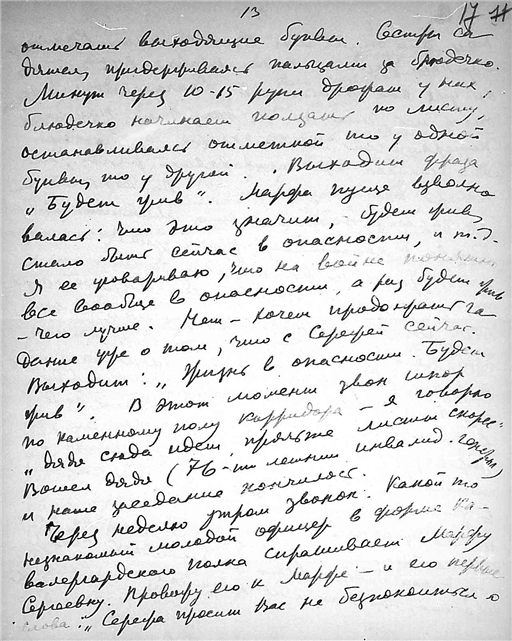 13
17 
отмечать выходящие буквы. Сестры са
дятся, придерживаясь пальцами за блюдечко.
Минут через 10-15 руки дрожат у них,
блюдечко начинает ползать по листу,
останавливаясь отметкой то у одной
буквы, то у другой. Выходит фраза
"Будет жив". Марфа пуще взволно
валась: что это значит, - будет жив,
стало быть сейчас в опасности, и т.д.
Я ее уговариваю, что на войне
все вообще в опасности, а раз будет жив
- чего лучше. Нет - хочет продолжать га-
дание уже о том, что с Сережей сейчас.
Выходит: "Жизнь в опасности. Будет
жив". В этот момент звон шпор
по каменному полу корридора - я говорю
"дядя сюда идет, прячьте листы скорее"
Вошел дядя (76-ти летний инвалид-генерал)
и наше заседание кончилось.
Через неделю утром звонок. Какой то
незнакомый молодой офицер в форме ка-
валергардского полка спрашивает Марфу
Сергеевну. Провожу его к Марфе - и его первые
слова: "Сережа просит Вас не безпокоиться о